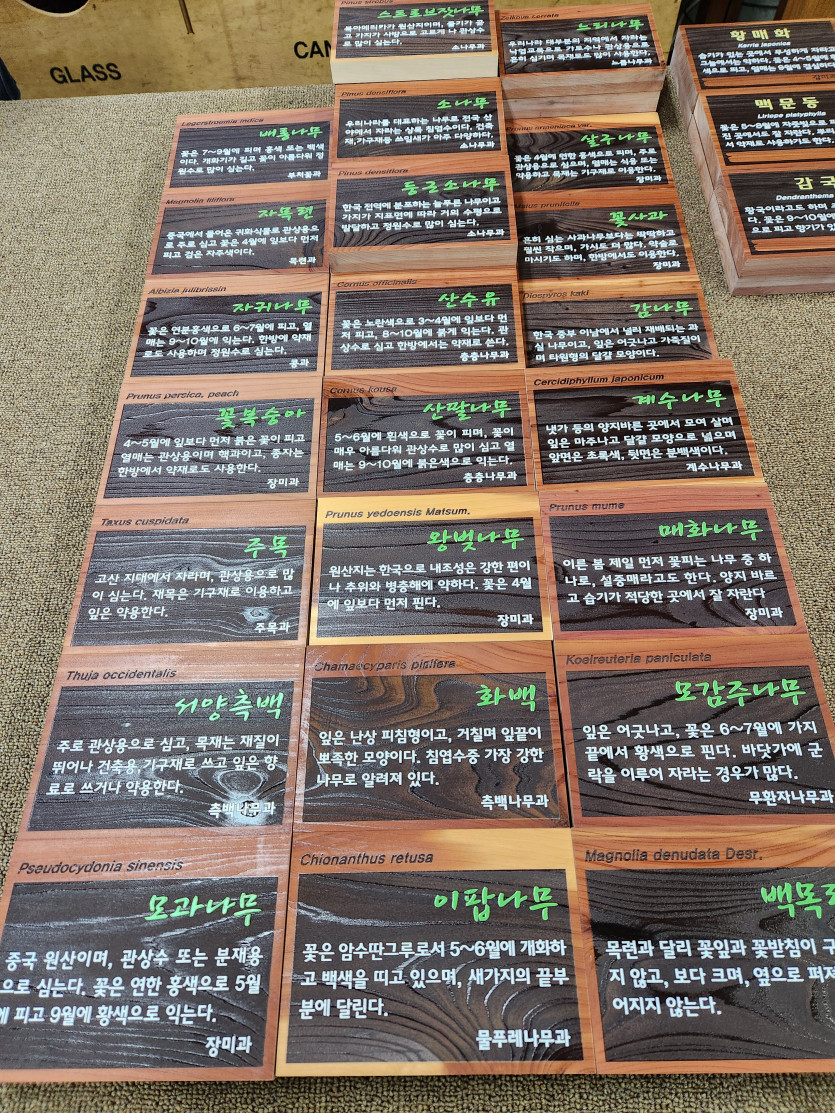 GLASS
CAN
Pinus strobus
스트로브잣나무
북아메리카가 원산지이며, 줄기가 곧
고 가지가 사방으로 고르게 나 관상수
로 많이 심는다.
소나무과
Zelkova serrata
느티나무
우리나라 대부분의 지역에서 자라는
낙엽교목으로 가로수나 관상용으로
흔히 심기며 목재로도 많이 사용한다.
느릅나무과
황매화
Kerria japonica
습기가 있는 곳에서 무성하게 자라며
그늘에서는 약하다. 꽃은 4~5월에
색으로 피고, 열매는 9월에
장미과
Lagerstroemia indica
배롱나무
꽃은 7~9월에 피며 홍색 또는 백색
이다. 개화기가 길고 꽃이 아름다워 정
원수로 많이 심는다.
부처꽃과
Pinus densiflora
소나무
우리나라를 대표하는 나무로 전국 산
야에서 자라는 상록 침엽수이다. 건축
재,가구재등 쓰임새가 아주 다양하다.
소나무과
Prunus armeniaca var.
살구나무
꽃은 4월에 연한 홍색으로 피며, 주로
관상용으로 심으며, 열매는 식용 또는
약용하고 목재는 기구재로 이용한다.
장미과
맥문동
Liriope platyphylla
꽃은 5~8월에 자줏빛으로
진 곳에서도 잘 자란다.
서 약재로 사용하기도 한다.
Magnolia liliflora
자목련
중국에서 들어온 귀화식물로 관상용으
로 주로 심고 꽃은 4월에 잎보다 먼저
피고 검은 자주색이다.
목련과
Pinus densiflora
둥근소나무
한국 전역에 분포하는 늘푸른 나무이고
가지가 지표면에 따라 거의 수평으로
발달하고 정원수로 많이 심는다.
소나무과
Malus prunifolia
꽃사과
흔히 심는 사과나무보다는 딱딱하고
훨씬 작으며, 가시도 더 많다. 약술로
마시기도 하며, 한방에서도 이용한다.
장미과
감국
Dendranthema
황국이라고도 하며
다. 꽃은 9~10월에
로 피고 향기가 있
Albizia julibrissin
자귀나무
꽃은 연분홍색으로 6~7월에 피고, 열
매는 9~10월에 익는다. 한방에 약재
로도 사용하며 정원수로 심는다.
콩과
Cornus officinalis
산수유
꽃은 노란색으로 3~4월에 잎보다 먼
저 피고, 8~10월에 붉게 익는다. 관
상수로 심고 한방에서는 약재로 쓴다.
층층나무과
Diospyros kaki
감나무
한국 중부 이남에서 널리 재배되는 과
실 나무이고, 잎은 어긋나고 가죽질이
며 타원형의 달걀 모양이다.
Prunus persica, peach
꽃복숭아
4~5월에 잎보다 먼저 붉은 꽃이 피고
열매는 관상용이며 핵과이고, 종자는
한방에서 약재로도 사용한다.
장미과
Cornus kousa
산딸나무
5~6월에 흰색으로 꽃이 피며, 꽃이
매우 아름다워 관상수로 많이 심고 열
매는 9~10월에 붉은색으로 익는다.
층층나무과
Cercidiphyllum japonicum
계수나무
냇가 등의 양지바른 곳에서 모여 살며
잎은 마주나고 달걀 모양으로 넓으며
앞면은 초록색, 뒷면은 분백색이다.
계수나무과
Taxus cuspidata
주목
고산 지대에서 자라며, 관상용으로 많
이 심는다. 재목은 기구재로 이용하고
잎은 약용한다.
주목과
Prunus yedoensis Matsum.
왕벚나무
원산지는 한국으로 내조성은 강한 편이
나 추위와 병충해에 약하다. 꽃은 4월
에 잎보다 먼저 핀다.
장미과
Prunus mume
매화나무
이른 봄 제일 먼저 꽃피는 나무 중 하
나로, 설중매라고도 한다. 양지 바르
고 습기가 적당한 곳에서 잘 자란다
장미과
Thuja occidentalis
서양측백
주로 관상용으로 심고, 목재는 재질이
뛰어나 건축용, 기구재로 쓰고 잎은 향
료로 쓰거나 약용한다.
측백나무과
Chamaecyparis pisifera
화백
잎은 난상 피침형이고, 거칠며 잎끝이
뾰족한 모양이다. 침엽수중 가장 강한
나무로 알려져 있다.
측백나무과
Koelreuteria paniculata
모감주나무
잎은 어긋나고, 꽃은 6~7월에 가지
끝에서 황색으로 핀다. 바닷가에 군
락을 이루어 자라는 경우가 많다.
무환자나무과
Pseudocydonia sinensis
모과나무
중국 원산이며, 관상수 또는 분재용
으로 심는다. 꽃은 연한 홍색으로 5월
에 피고 9월에 황색으로 익는다.
장미과
Chionanthus retusa
이팝나무
꽃은 암수딴그루로서 5~6월에 개화하
고 백색을 띠고 있으며, 새가지의 끝부
분에 달린다.
물푸레나무과
Magnolia denudata Desr.
백목련
목련과 달리 꽃잎과 꽃받침이 구
지 않고, 보다 크며, 옆으로 퍼져
어지지 않는다.